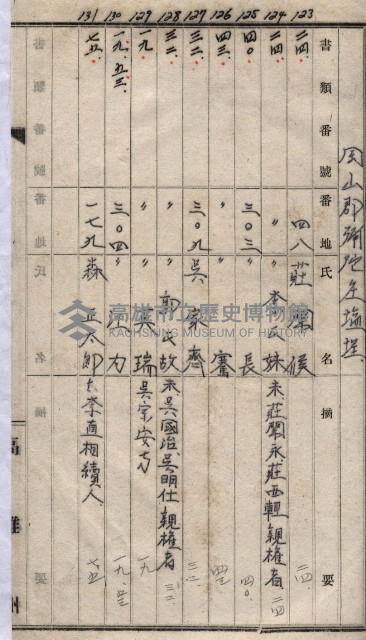 123 124 125 126 127 128 129 130 131
岡山郡彌陀庄塩埕
書類番號 番地 氏名 摘要
二四、 四八 莊 候 二四、
二四、 〃 李 妹 未、莊閣永、莊西輕親權者 二四
四〇、 三〇三 〃 長 四〇、
四三、 〃 〃 騫 四三
三二、 三〇九 吳 家齊 三二
三二、 〃 郭氏故 未、吳國治、吳明仕親權者 三二、
一九、 〃 吳瑞 吳宗安方 一九
一九、五三、 三〇四 力 一九、五三
七五、 一七九 森 正太郎 相續人 七五
高雄市立歷史博物館
KAOHSIUNG MUSEUM OF HISTORY
高雄州